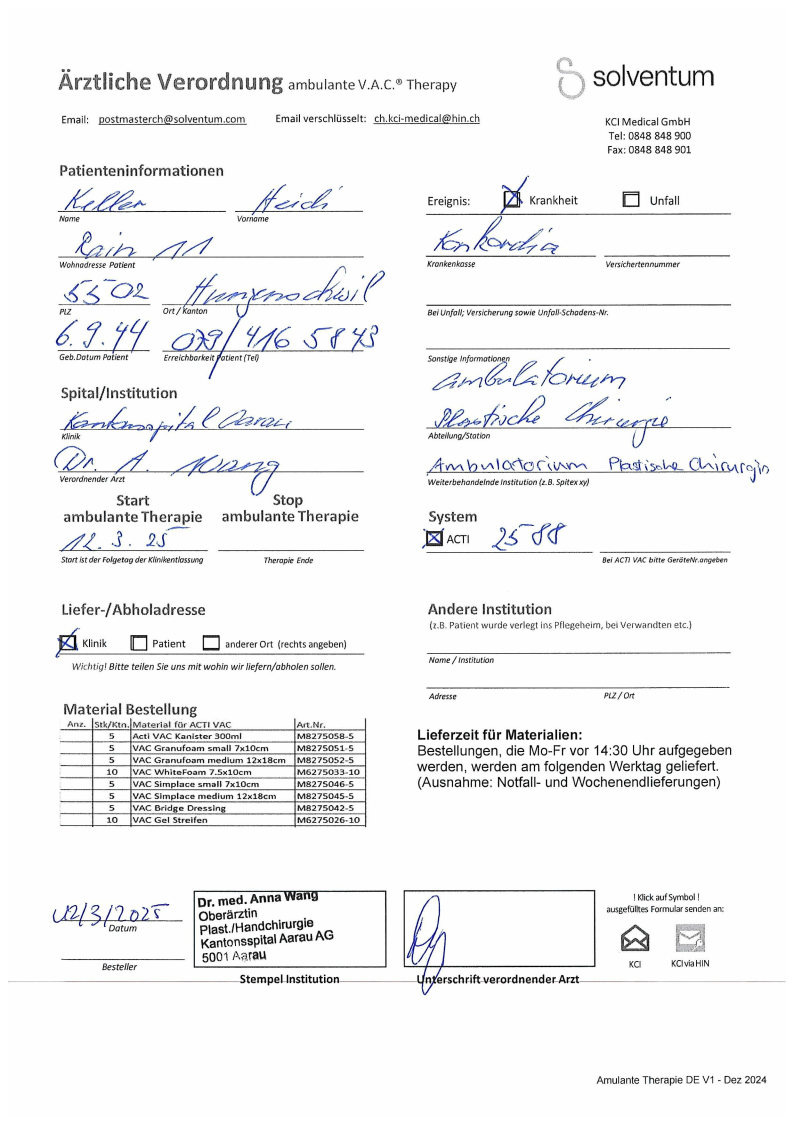 Ärztliche Verordnung ambulante V.A.C.® Therapy
solventum
Email: postmasterch@solventum.com Email verschlüsselt: ch.kci-medical@hin.ch
KCI Medical GmbH
Tel: 0848 848 900
Fax: 0848 848 901
Patienteninformationen
Keller Heidi
Name Vorname
Rain 11
Wohnadresse Patient
5502 Hunzenschwil
PLZ Ort / Kanton
6.9.44 079/416 58 43
Geb.Datum Patient Erreichbarkeit Patient (Tel)
Ereignis: Krankheit Unfall
Konkordia
Krankenkasse Versichertennummer
Bei Unfall; Versicherung sowie Unfall-Schadens-Nr.
Sonstige Informationen
Ambulatorium
Plastische Chirurgie
Abteilung/Station
Ambulatorium Plastische Chirurgin
Weiterbehandelnde Institution (z.B. Spitex xy)
Spital/Institution
Kantonsspital Aarau
Klinik
Dr. A. Wang
Verordnender Arzt
Start Stop
ambulante Therapie ambulante Therapie
12.3.25
Start ist der Folgetag der Klinikentlassung Therapie Ende
System
ACTI 2588
Bei ACTI VAC bitte GeräteNr.angeben
Liefer-/Abholadresse
Klinik Patient anderer Ort (rechts angeben)
Wichtig! Bitte teilen Sie uns mit wohin wir liefern/abholen sollen.
Andere Institution
(z.B. Patient wurde verlegt ins Pflegeheim, bei Verwandten etc.)
Name / Institution
Adresse PLZ / Ort
Material Bestellung
Anz. Stk/Ktn. Material für ACTI VAC Art.Nr.
5 Acti VAC Kanister 300ml M8275058-5
5 VAC Granufoam small 7x10cm M8275051-5
5 VAC Granufoam medium 12x18cm M8275052-5
10 VAC WhiteFoam 7.5x10cm M6275033-10
5 VAC Simplace small 7x10cm M8275046-5
5 VAC Simplace medium 12x18cm M8275045-5
5 VAC Bridge Dressing M8275042-5
10 VAC Gel Streifen M6275026-10
Lieferzeit für Materialien:
Bestellungen, die Mo-Fr vor 14:30 Uhr aufgegeben
werden, werden am folgenden Werktag geliefert.
(Ausnahme: Notfall- und Wochenendlieferungen)
12/3/2025
Datum
Besteller
Dr. med. Anna Wang
Oberärztin
Plast./Handchirurgie
Kantonsspital Aarau AG
5001 Aarau
Stempel Institution
Unterschrift verordnender Arzt
! Klick auf Symbol !
ausgefülltes Formular senden an:
KCI KCI via HIN
Amulante Therapie DE V1 - Dez 2024